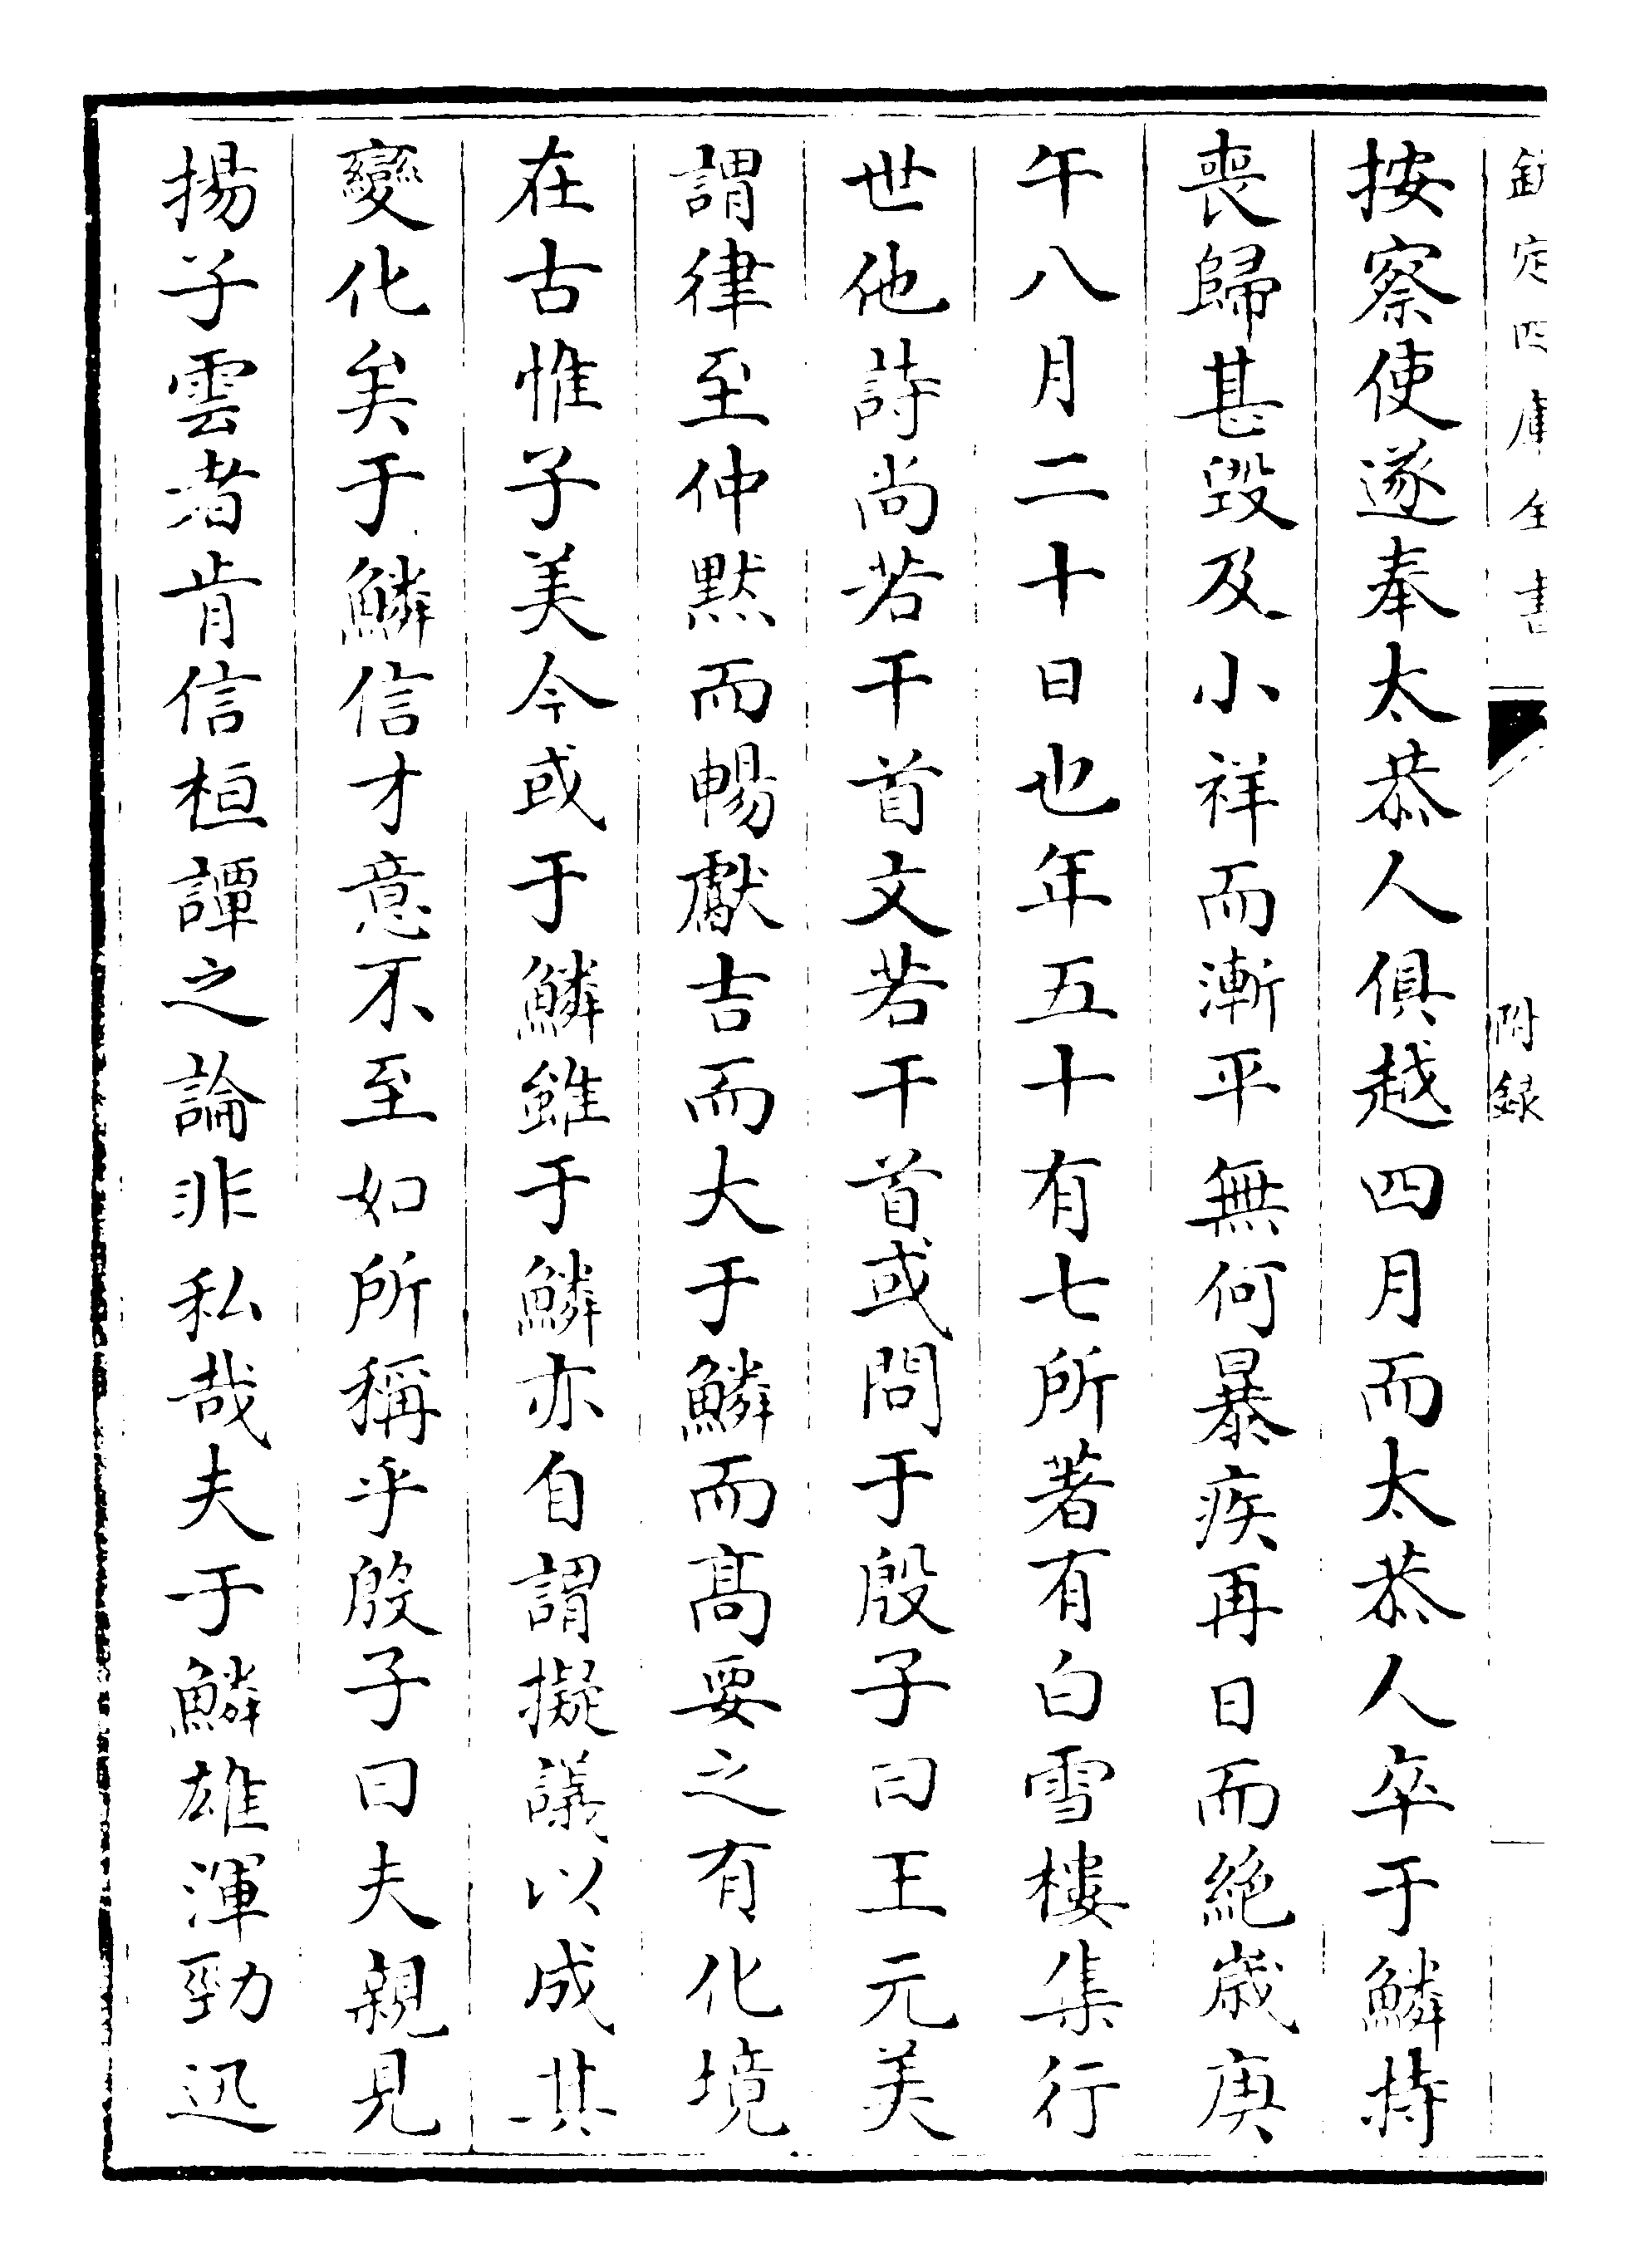 欽定四庫全書 附録
按察使遂奉太恭人俱越四月而太恭人卒于鱗持
喪歸甚毀及小祥而漸平無何暴疾再日而絶歲庚
午八月二十日也年五十有七所著有白雪樓集行
世他詩尚若干首文若干首或問于殷子曰王元美
謂律至仲黙而暢獻吉而大于鱗而髙要之有化境
在古惟子美今或于鱗雖于鱗亦自謂擬議以成其
變化矣于鱗信才意不至如所稱乎殷子曰夫親見
揚子雲者肯信桓譚之論非私哉夫于鱗雄渾勁迅